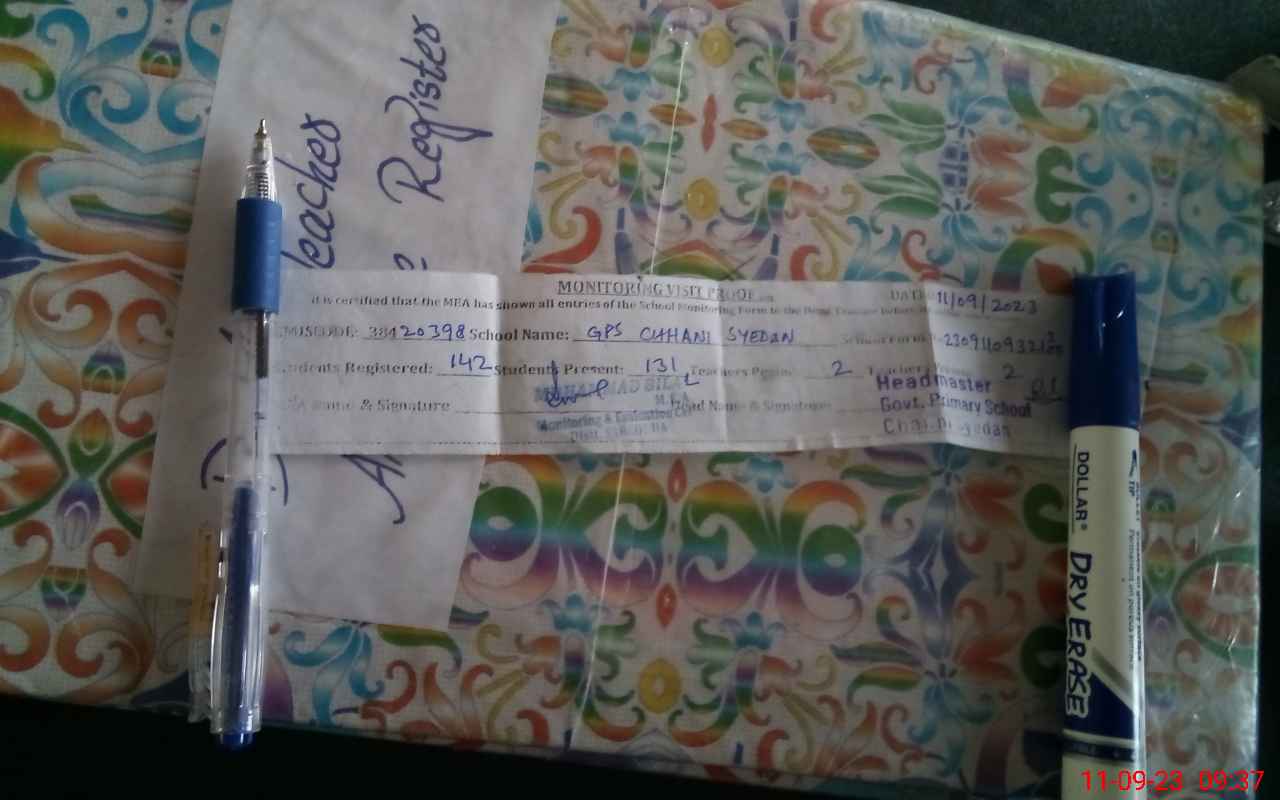 Teacher
Register
MONITORING VISIT PROOF
DATE 11/09/2023
it is certified that the MEA has shown all entries of the School Monitoring Form to the Head Teacher before
EMISCODE: 38420398 School Name: GPS CHHANI SYEDAN
Students Registered: 142 Students Present: 131 Teachers 2 Teachers 2
Name & Signature
MUHAMMAD BILAL
M.E.A
Monitoring & Evaluation
Head Name & Signature
Headmaster
Govt. Primary School
DOLLAR®
DRY ERASE
BULLET TIP
11-09-23 09:37